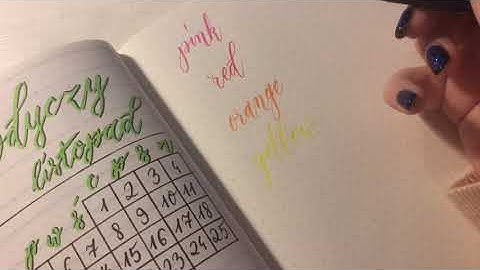 listopad
p w ś c p s n
1 2 3 4
6 7 8 9 10 11
14 15 16 17 18
23 24 25
pink
red
orange
yellow